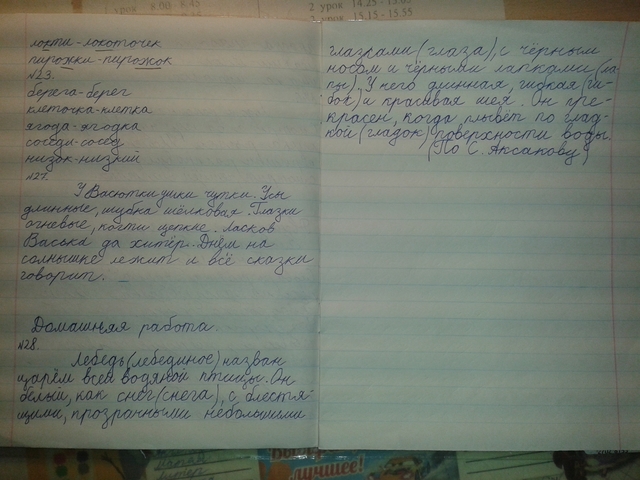 урок 8.00 8.45
2 урок 14.25 - 15.05
15.15 - 15.55
локти-локоточек
пирожки-пирожок
№23.
берега-берег
клеточка-клетка
ягода-ягодка
соседи-сосед
низок-низкий
№27.
У Васютки ушки чутки. Усы
длинные, шубка шёлковая. Глазки
огневые, когти цепкие. Ласков
Васька да хитёр. Днём на
солнышке лежит и всё сказки
говорит.
Домашняя работа.
№28.
Лебедь(лебединое) назван
царём всей водяной птицы. Он
белый, как снег(снега), с блестя-
щими, прозрачными небольшими
глазрами(глаза), с чёрным
носом и чёрными лапками(ла-
пы). У него длинная, гибкая(ги-
бок) и красивая шея. Он пре-
красен, когда плывёт по глад-
кой(гладок) поверхности воды.
(По С. Аксакову)
лучшее!